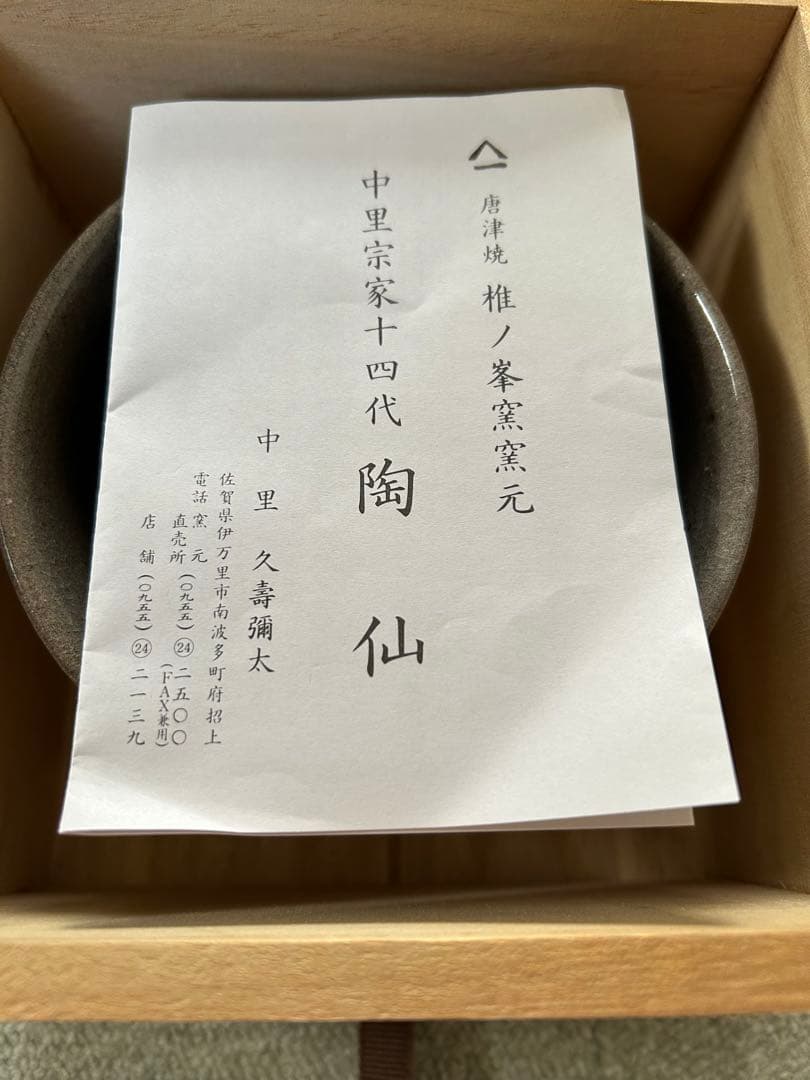 唐津焼 椎ノ峯窯窯元
中里宗家十四代 陶仙
中里久壽彌太
佐賀県伊万里市南波多町府招上
電話 窯元
直売所 (〇九五五) ㉔ 二五〇〇
(FAX兼用)
店舗 (〇九五五) ㉔ 二一三九